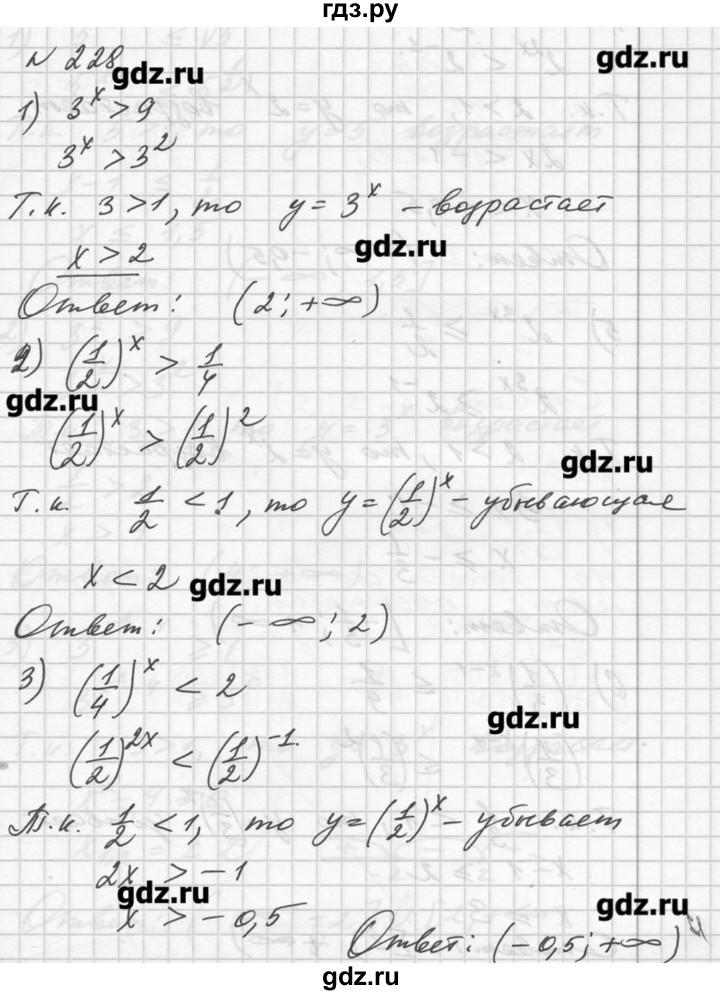 гдз.ру
№ 228
gdz.ru
gdz.ru
1) 3^x > 9
3^x > 3^2
Т.к. 3 > 1, то y = 3^x – возрастает
gdz.ru
x > 2
Ответ: (2; +∞)
2) (1/2)^x > 1/4
gdz.ru
(1/2)^x > (1/2)^2
gdz.ru
Т.к. 1/2 < 1, то y = (1/2)^x – убывающая
x < 2
gdz.ru
Ответ: (-∞; 2)
3) (1/4)^x < 2
gdz.ru
(1/2)^2x < (1/2)^-1.
Т.к. 1/2 < 1, то y = (1/2)^x – убывает
2x > -1
gdz.ru
x > -0,5
gdz.ru
Ответ: (-0,5; +∞)
gdz.ru